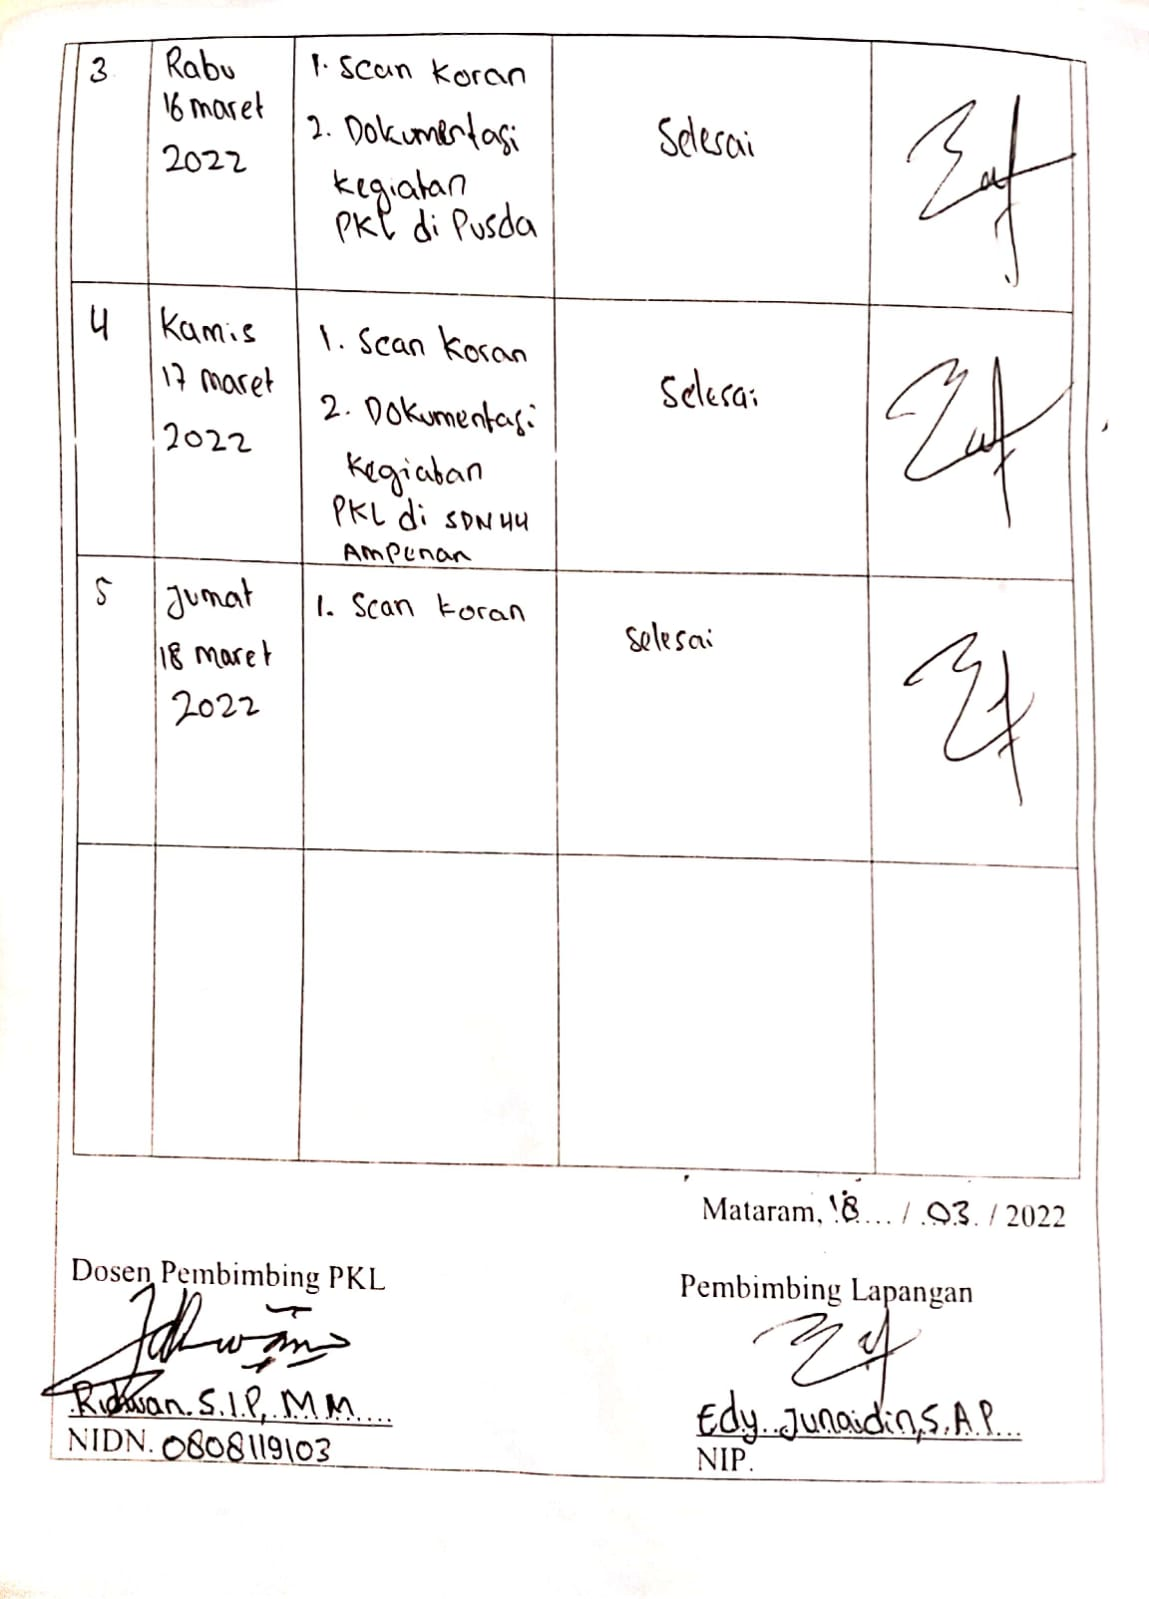 3
Rabu
16 maret
2022
1. Scan Koran
2. Dokumentasi
kegiatan
PKL di Pusda
Selesai
4
Kamis
17 maret
2022
1. Scan Koran
2. Dokumentasi
Kegiatan
PKL di SDN 44
Ampenan
Selesai
5
Jumat
18 maret
2022
1. Scan koran
Selesai
Mataram, 18.... / .03. / 2022
Dosen Pembimbing PKL
Pembimbing Lapangan
Ridwan. S.I.P, M.M....
Edy Junaidin, S.A.P...
NIDN. 0808119103
NIP.